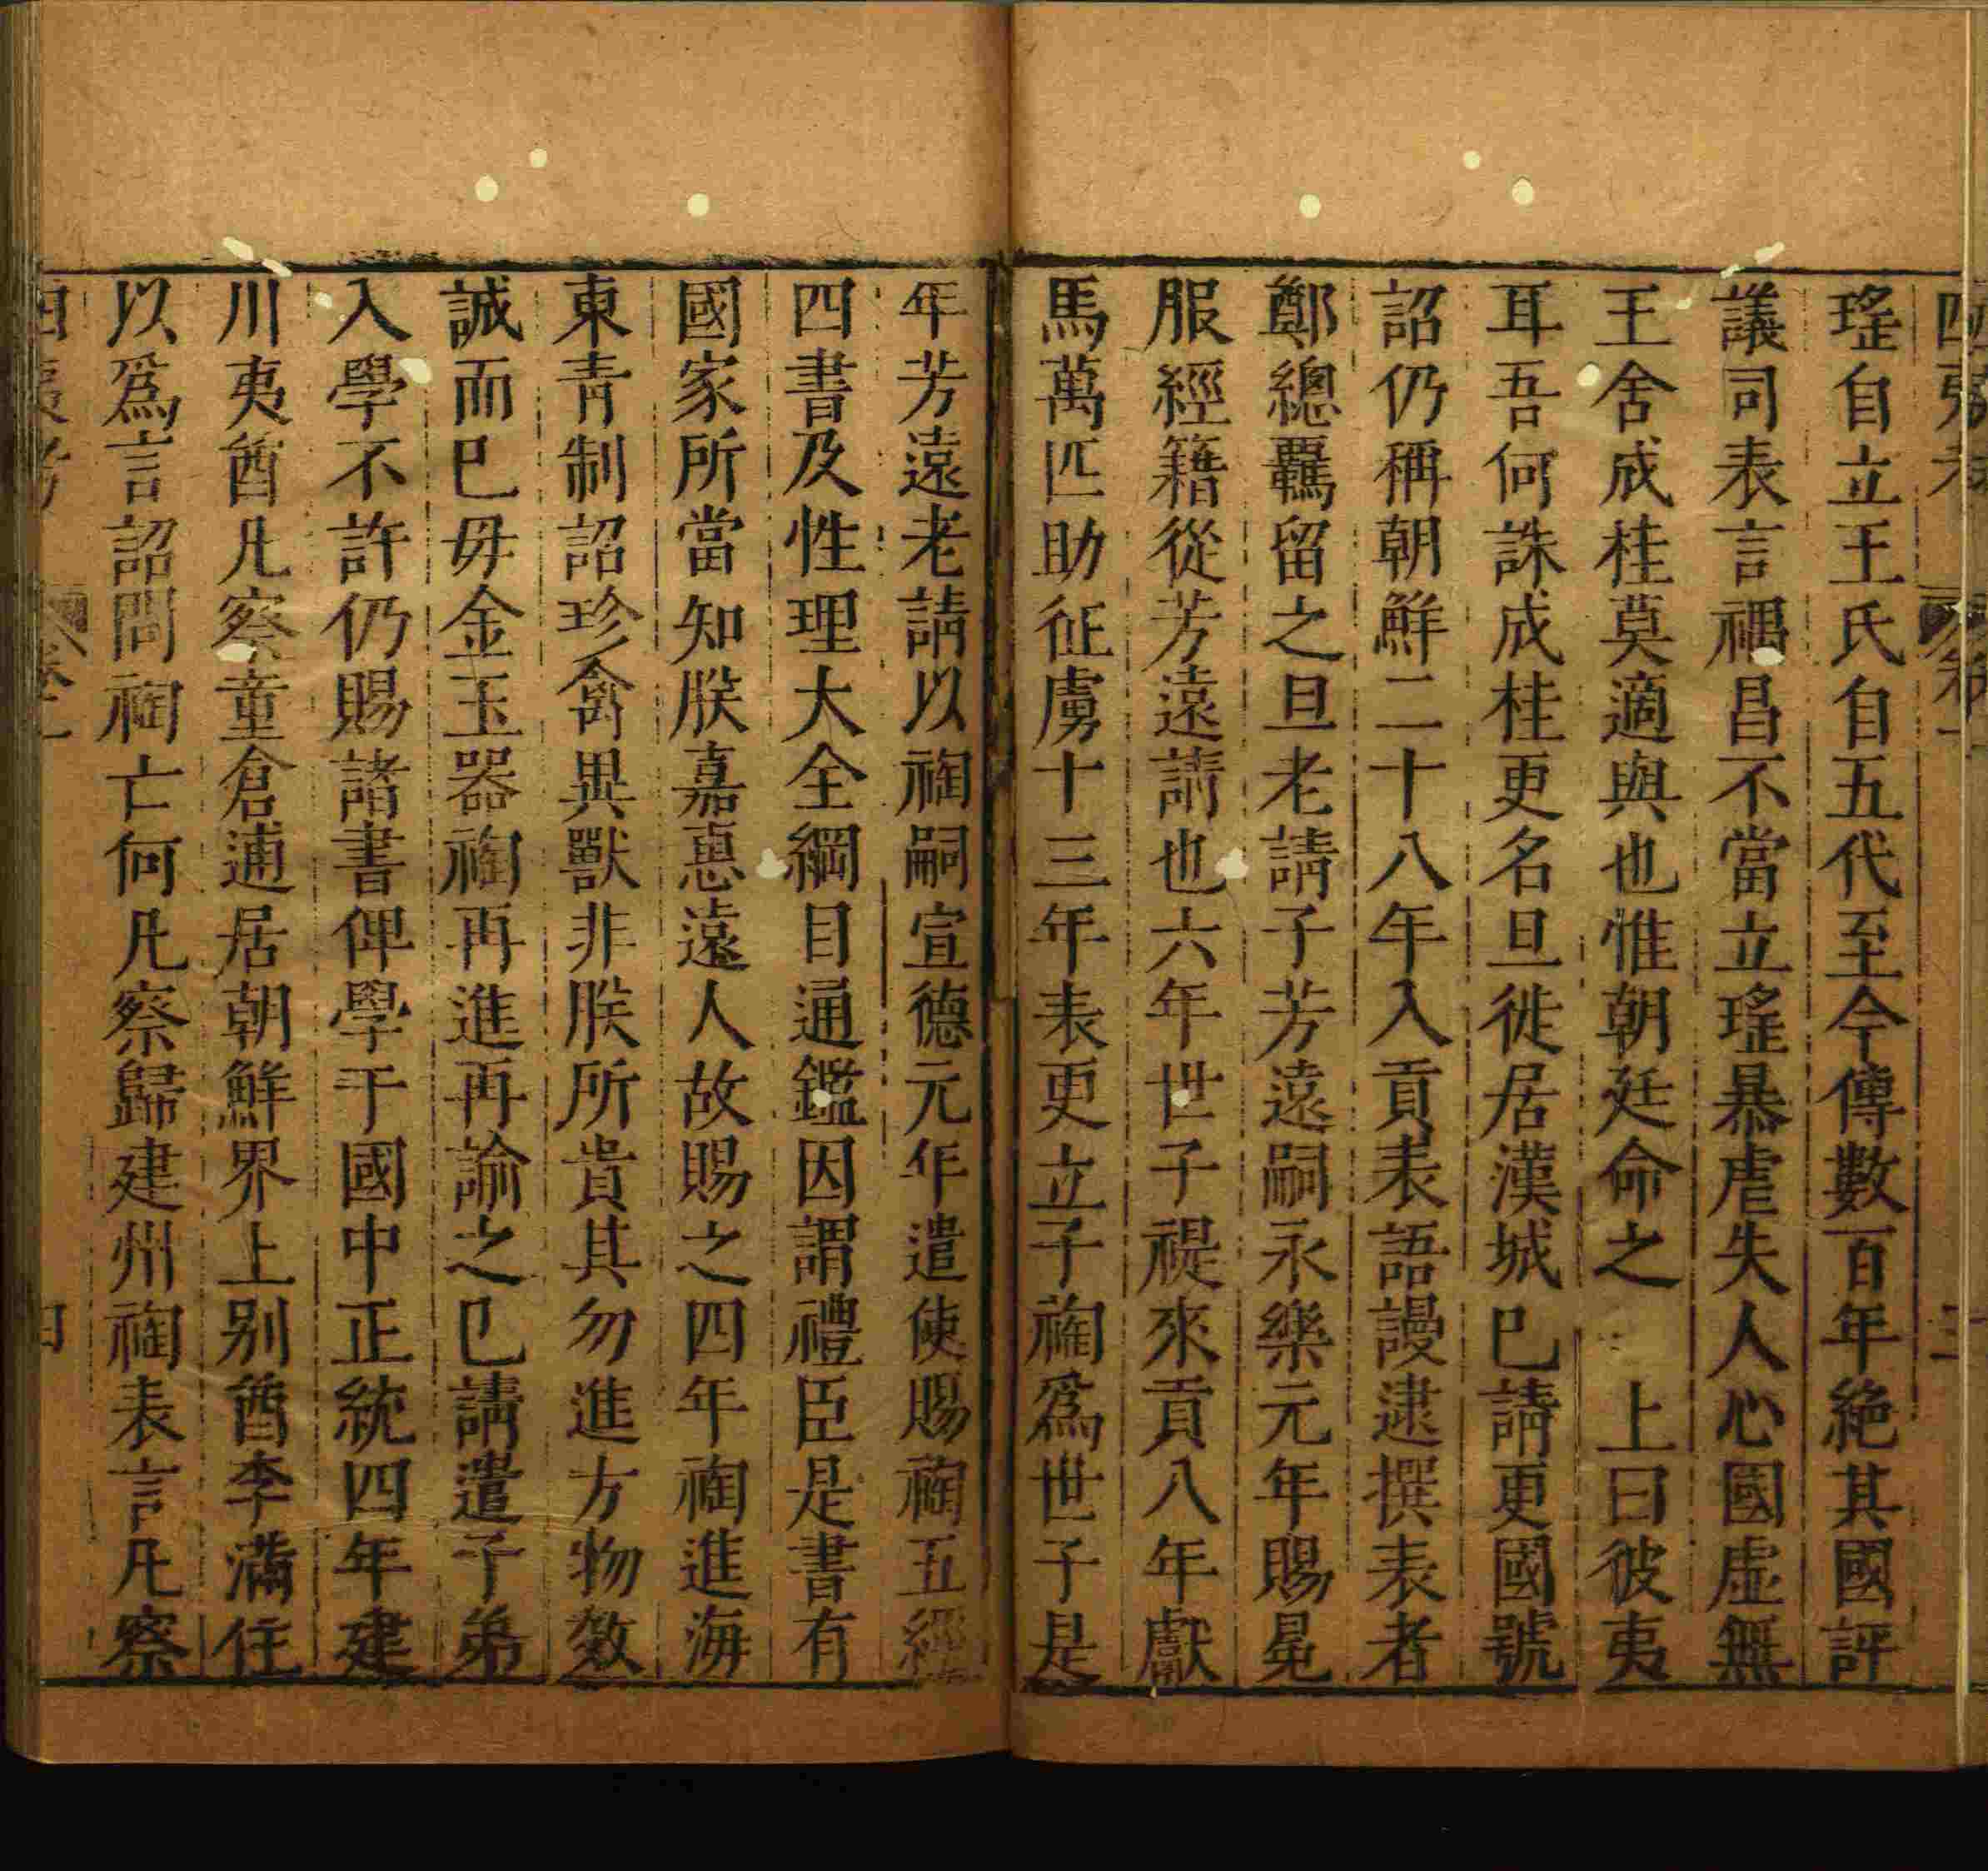 瑤自立王氏自五代至今傳數百年絶其國評
議司表言禑昌不當立瑤暴虐失人心國虛無
王舍成桂莫適與也惟朝廷命之　上曰彼夷
耳吾何誅成桂更名旦徙居漢城巳請更國號
詔仍稱朝鮮二十八年入貢表語謾逮撰表者
鄭總羈留之旦老請子芳遠嗣永樂元年賜冕
服經籍從芳遠請也六年世子禔來貢八年獻
馬萬匹助征虜十三年表更立子裪爲世子是
年芳遠老請以裪嗣宣德元年遣使賜裪五經
四書及性理大全綱目通鑑因謂禮臣是書有
國家所當知朕嘉惠遠人故賜之四年裪進海
東青制詔珍禽異獸非朕所貴其勿進方物效
誠而巳毋金玉器裪再進再諭之巳請遣子弟
入學不許仍賜諸書俾學于國中正統四年建
川夷酋凡察童倉逋居朝鮮界上别酋李滿住
以爲言詔問裪亡何凡察歸建州裪表言凡察